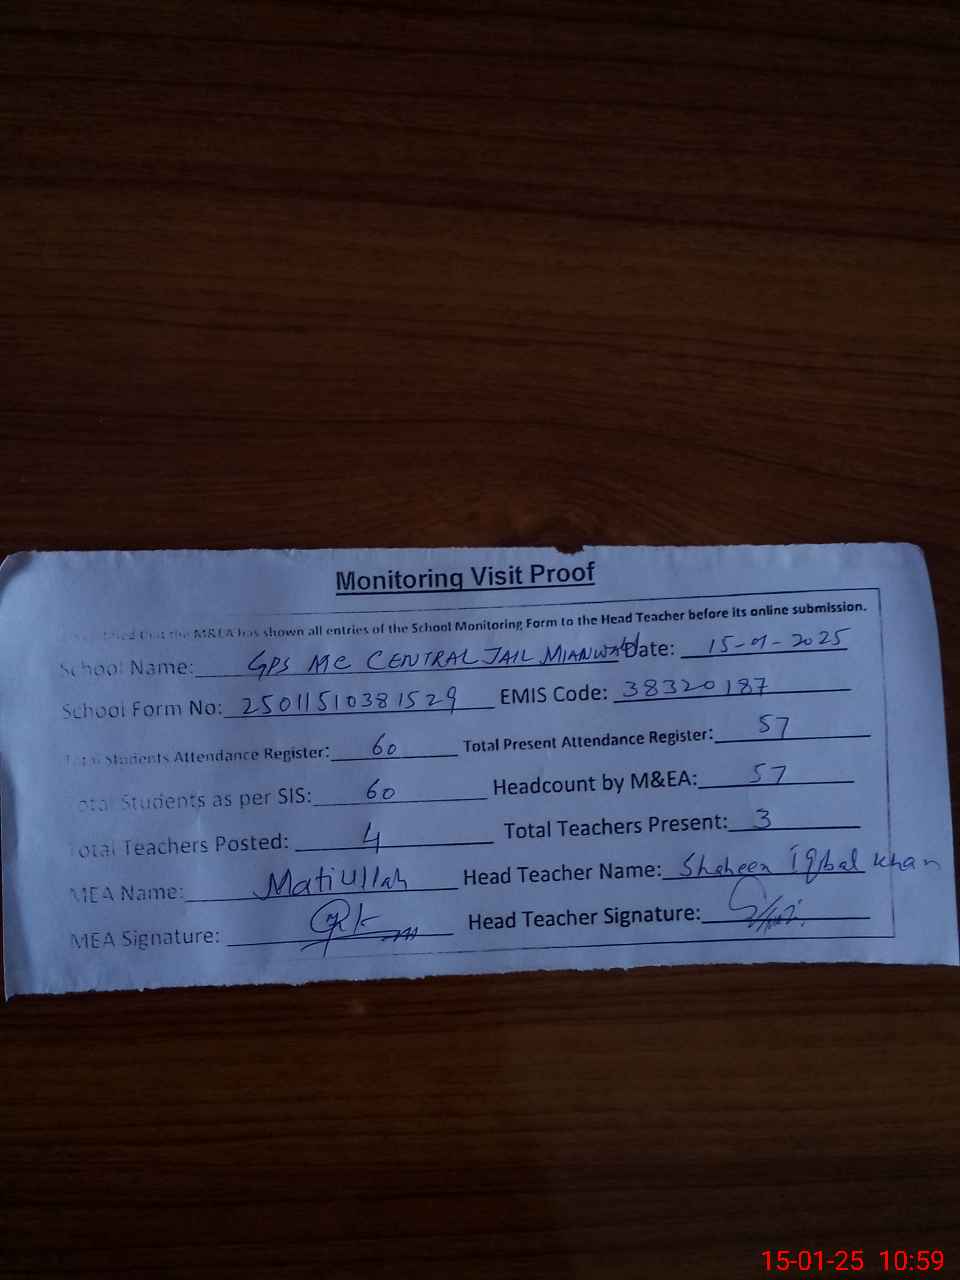 Monitoring Visit Proof
that the M&EA has shown all entries of the School Monitoring Form to the Head Teacher before its online submission.
School Name: GPS MC CENTRAL JAIL MIANWALI Date: 15-01-2025
School Form No: 25011510381529 EMIS Code: 38320187
Total Students Attendance Register: 60 Total Present Attendance Register: 57
Total Students as per SIS: 60 Headcount by M&EA: 57
Total Teachers Posted: 4 Total Teachers Present: 3
MEA Name: Matiullah Head Teacher Name: Shaheen Iqbal khan
MEA Signature: Head Teacher Signature:
15-01-25 10:59